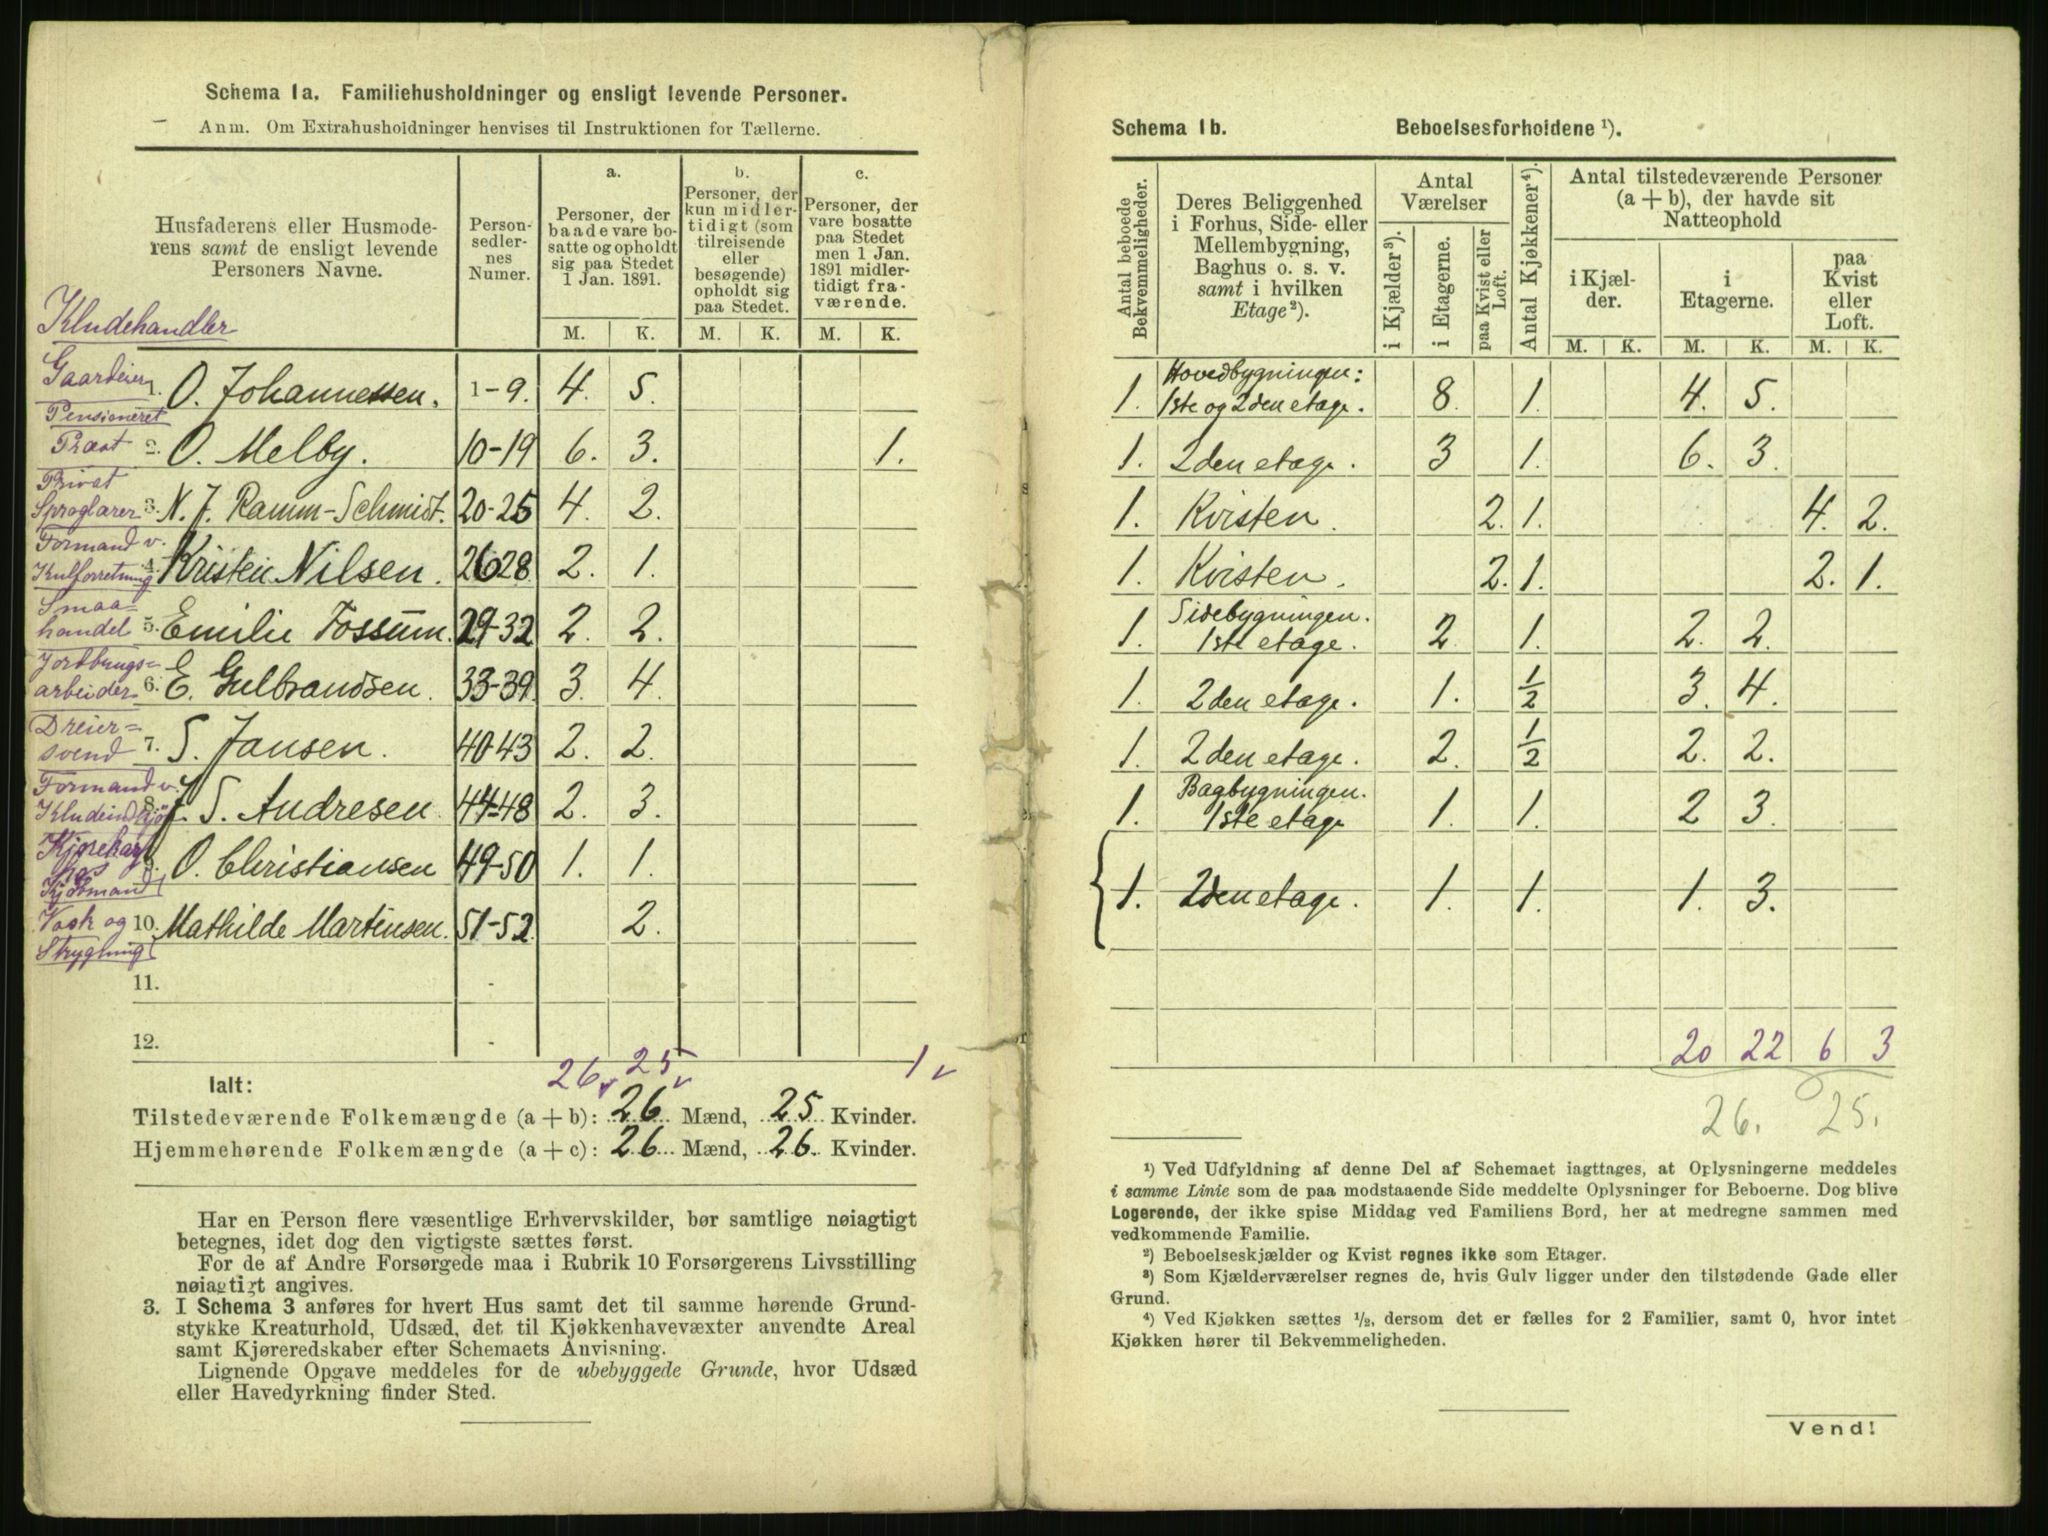 Schema 1a. Familiehusholdninger og ensligt levende Personer.
Anm. Om Extrahusholdninger henvises til Instruktionen for Tællerne.
Husfaderens eller Husmoderens samt de ensligt levende Personers Navne.
Personsedlernes Numer.
a. Personer, der baade vare bosatte og opholdt sig paa Stedet 1 Jan. 1891.
b. Personer, der kun midlertidigt (som tilreisende eller besøgende) opholdt sig paa Stedet.
c. Personer, der vare bosatte paa Stedet men 1 Jan. 1891 midlertidigt fraværende.
M. K. M. K. M. K.
Kludehandler
Gaardeier 1. O. Johannessen. 1-9. 4. 5.
Pensioneret Præst 2. O. Melby. 10-19 6. 3. 1.
Privat Sproglærer 3. N. J. Ramm-Schmidt. 20-25 4. 2.
Formand v. Kulforretning 4. Kristen Nilsen. 26-28. 2. 1.
Smaahandel 5. Emilie Fossum. 29-32 2. 2.
arbeider 6. E. Gulbrandsen. 33-39. 3. 4.
Dreiersvend 7. S. Jansen. 40-43 2. 2.
Formand v. 8. J. S. Andresen 44-48 2. 3.
9. O. Christiansen 49-50 1. 1.
Vask og Strygning 10. Mathilde Martinsen. 51-52. 2.
11.
12.
26 25 1
Ialt:
Tilstedeværende Folkemængde (a + b): 26 Mænd, 25 Kvinder.
Hjemmehørende Folkemængde (a + c): 26 Mænd, 26 Kvinder.
Har en Person flere væsentlige Erhvervskilder, bør samtlige nøiagtigt
betegnes, idet dog den vigtigste sættes først.
For de af Andre Forsørgede maa i Rubrik 10 Forsørgerens Livsstilling
nøiagtigt angives.
3. I Schema 3 anføres for hvert Hus samt det til samme hørende Grund-
stykke Kreaturhold, Udsæd, det til Kjøkkenhavevæxter anvendte Areal
samt Kjøreredskaber efter Schemaets Anvisning.
Lignende Opgave meddeles for de ubebyggede Grunde, hvor Udsæd
eller Havedyrkning finder Sted.
Schema 1b. Beboelsesforholdene ¹).
Antal beboede Bekvemmeligheder.
Deres Beliggenhed i Forhus, Side- eller Mellembygning, Baghus o. s. v. samt i hvilken Etage ²).
Antal Værelser
i Kjælder ³).
i Etagerne.
paa Kvist eller Loft.
Antal Kjøkkener ⁴).
Antal tilstedeværende Personer (a + b), der havde sit Natteophold
i Kjælder.
i Etagerne.
paa Kvist eller Loft.
M. K. M. K. M. K.
1. Hovedbygningen: 1ste og 2den etage. 8. 1. 4. 5.
1. 2den etage. 3 1. 6. 3.
1. Kvisten. 2. 1. 4. 2.
1. Kvisten. 2. 1. 2. 1.
1. Sidebygningen. 1ste etage. 2. 1. 2. 2.
1. 2den etage. 1. ½ 3. 4.
1. 2den etage. 2. ½ 2. 2.
1. Bagbygningen. 1ste etage 1. 1. 2 3.
1. 2den etage. 1. 1. 1. 3.
20 22 6 3
26. 25.
¹) Ved Udfyldning af denne Del af Schemaet iagttages, at Oplysningerne meddeles
i samme Linie som de paa modstaaende Side meddelte Oplysninger for Beboerne. Dog blive
Logerende, der ikke spise Middag ved Familiens Bord, her at medregne sammen med
vedkommende Familie.
²) Beboelseskjælder og Kvist regnes ikke som Etager.
³) Som Kjælderværelser regnes de, hvis Gulv ligger under den tilstødende Gade eller
Grund.
⁴) Ved Kjøkken sættes ½, dersom det er fælles for 2 Familier, samt 0, hvor intet
Kjøkken hører til Bekvemmeligheden.
Vend!